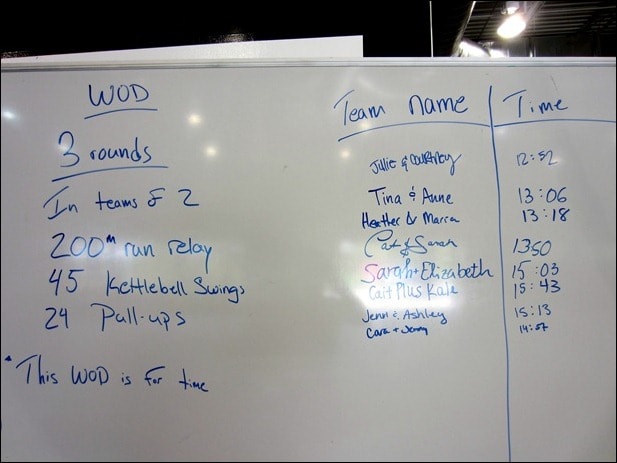 WOD
3 rounds
In teams of 2
200m run relay
45 Kettlebell Swings
24 Pull-ups
This WOD is for time
Team name Time
Julie & Courtney 12:52
Tina & Anne 13:06
Heather & Marca 13:18
& Sarah 1350
Sarah + Elizabeth 15:03
Cait Plus Kale 15:43
Jenn & Ashley 15:13
Cara + Jenny 14:57